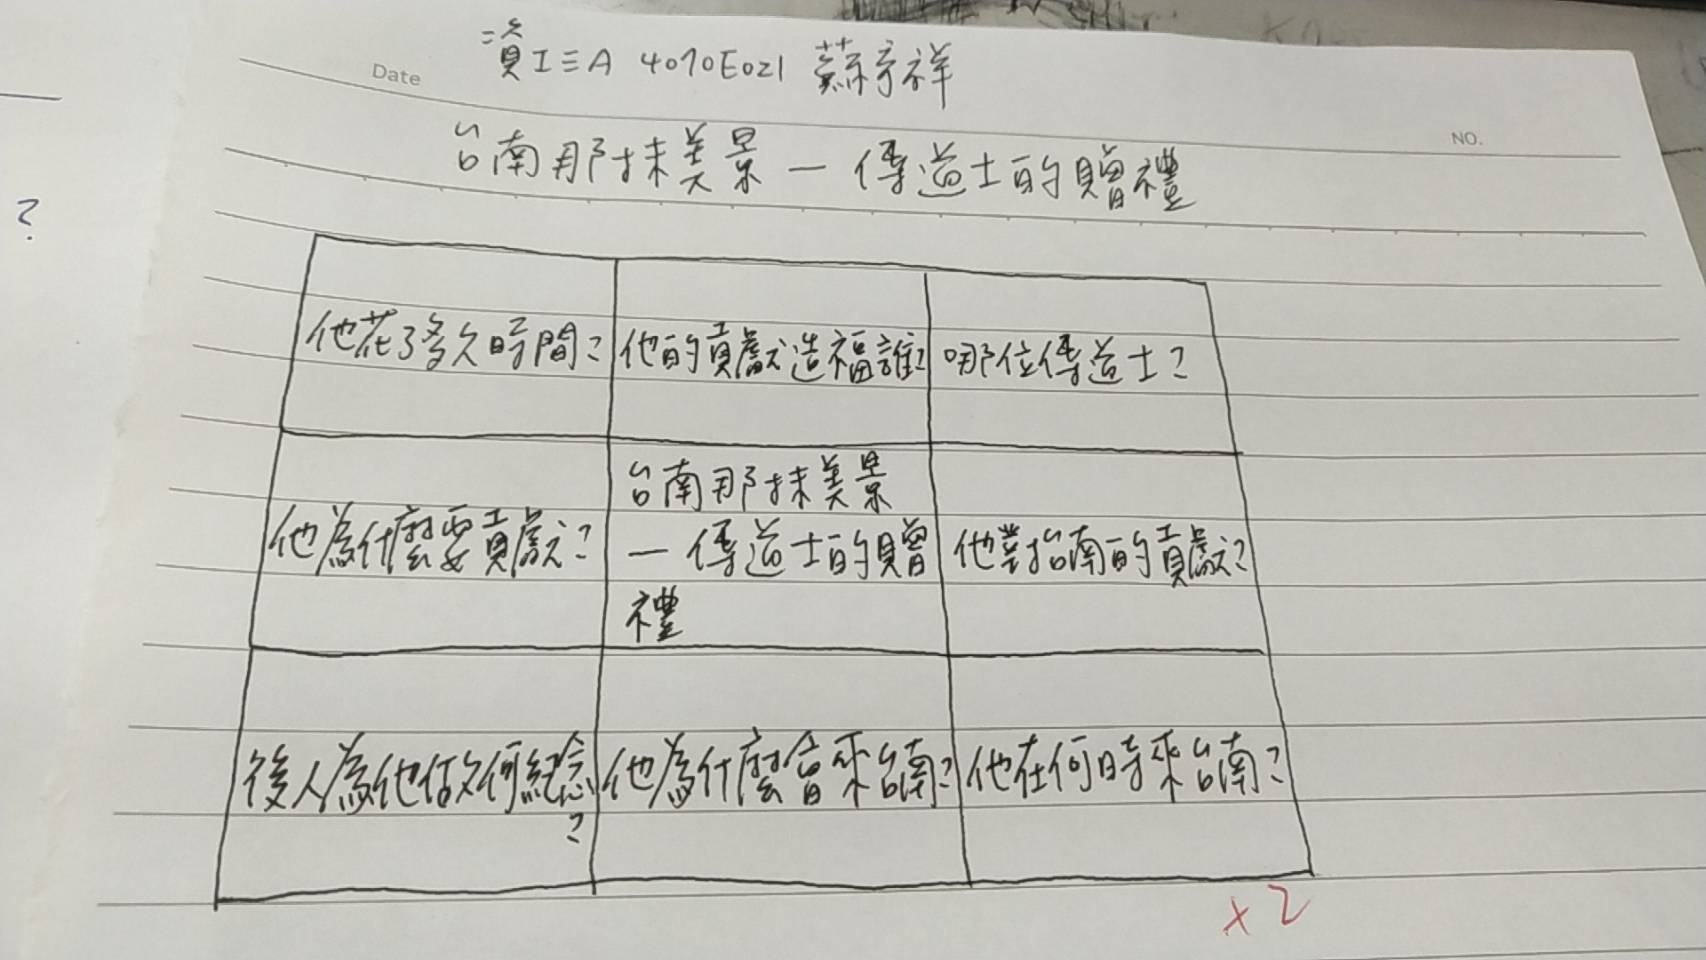 Date
資工三A 4070E021 蘇宇祥
NO.
台南那抹美景 — 傳道士的贈禮
?
他花了多久時間?
他的貢獻造福誰?
哪位傳道士?
他為什麼要貢獻?
台南那抹美景
— 傳道士的贈
禮
他對台南的貢獻?
後人為他做何紀念
?
他為什麼會來台南?
他在何時來台南?
x2